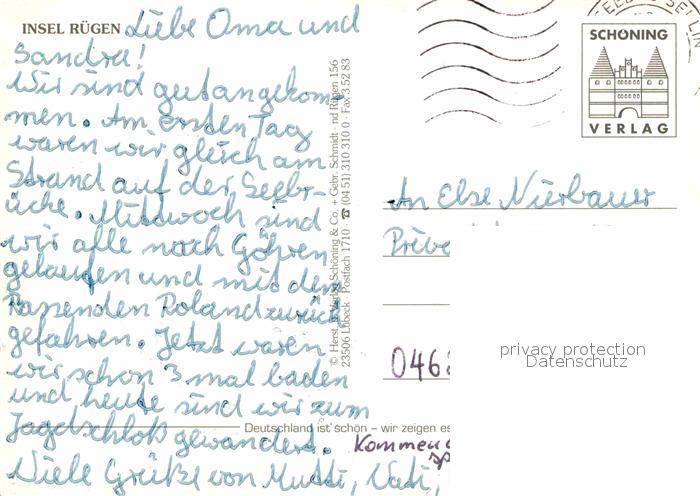 INSEL RÜGEN
Liebe Oma und
Sandra!
Wir sind gut angekom-
men. Am ersten Tag
waren wir gleich am
Strand auf der Seebr-
ücke. Mittwoch sind
wir alle nach Göhren
gelaufen und mit dem
Rasenden Roland zurück
gefahren. Jetzt waren
wir schon 3 mal baden
und heute sind wir zum
Jagdschloß gewandert.
Viele Grüße von Mutti, Vati,
Kommen
Deutschland ist schön – wir zeigen es
23506 Lübeck · Postfach 1710 · ☎ (04 51) 310 310 0 · Fax 3 52 83
Schöning & Co. + Gebr. Schmidt · nd Rügen 156
SCHÖNING
VERLAG
An Else Nierbauer
046
privacy protection
Datenschutz